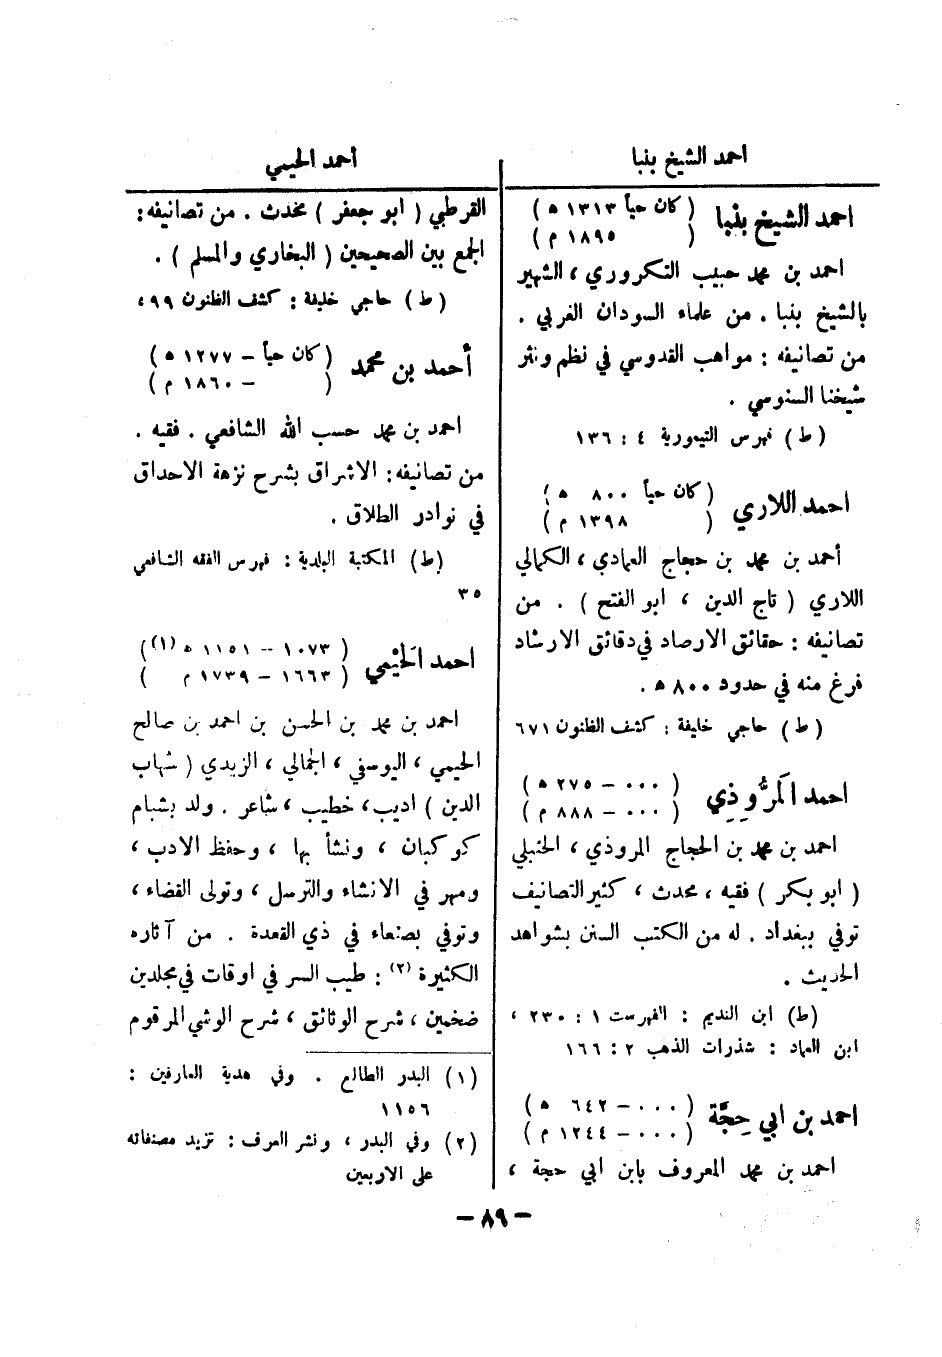 احمد الشيخ بنبا
احمد الشيخ بنبا ( كان حياً ١٣١٣ ه )
( ١٨٩٥ م )
احمد بن محمد حبيب التكروري ، الشهير
بالشيخ بنبا . من علماء السودان الغربي .
من تصانيفه : مواهب القدوسي في نظم ونثر
شيخنا السنوسي .
( ط ) فهرس التيمورية ٤ : ١٣٦
احمد اللاري ( كان حياً ٨٠٠ ه )
( ١٣٩٨ م )
أحمد بن محمد بن حجاج العمادي ، الكمالي
اللاري ( تاج الدين ، ابو الفتح ) . من
تصانيفه : حقائق الارصاد في دقائق الارشاد
فرغ منه في حدود ٨٠٠ ه .
( ط ) حاجي خليفة : كشف الظنون ٦٧١
احمد المَرُّوذِي ( ٠٠٠ – ٢٧٥ ه )
( ٠٠٠ – ٨٨٨ م )
احمد بن محمد بن الحجاج المروذي ، الحنبلي
( ابو بكر ) فقيه ، محدث ، كثير التصانيف
توفي ببغداد . له من الكتب السنن بشواهد
الحديث .
(ط) ابن النديم : الفهرست ١ : ٢٣٠ ،
ابن العماد : شذرات الذهب ٢ : ١٦٦
احمد بن ابي حِجَّة ( ٠٠٠ – ٦٤٢ ه )
( ٠٠٠ – ١٢٤٤ م )
احمد بن محمد المعروف بابن ابي حجة ،
أحمد الحيمي
القرطبي ( ابو جعفر ) محدث . من تصانيفه :
الجمع بين الصحيحين ( البخاري والمسلم ) .
( ط ) حاجي خليفة : كشف الظنون ٩٩ ،
أحمد بن محمد ( كان حياً – ١٢٧٧ ه )
( – ١٨٦٠ م )
احمد بن محمد حسب الله الشافعي . فقيه .
من تصانيفه : الاشراق بشرح نزهة الاحداق
في نوادر الطلاق .
(ط) المكتبة البلدية : فهرس الفقه الشافعي
٣٥
احمد الحَيْمي ( ١٠٧٣ – ١١٥١ ه (١) )
( ١٦٦٣ – ١٧٣٩ م )
احمد بن محمد بن الحسن بن احمد بن صالح
الحيمي ، اليوسفي ، الجمالي ، الزيدي ( شهاب
الدين ) اديب ، خطيب ، شاعر . ولد بشبام
كوكبان ، ونشأ بها ، وحفظ الادب ،
ومهر في الانشاء والترسل ، وتولى القضاء ،
وتوفي بصنعاء في ذي القعدة . من آثاره
الكثيرة (٢) : طيب السر في اوقات في مجلدين
ضخمين ، شرح الوثائق ، شرح الوشي المرقوم
(١) البدر الطالع . وفي هدية العارفين :
١١٥٦
(٢) وفي البدر ، ونشر العرف : تزيد مصنفاته
على الاربعين
– ٨٩ –